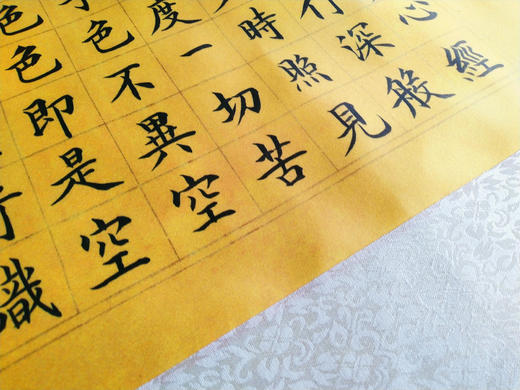 心經
行深般
時照見
度一切苦
色不異空
色色即是空
識